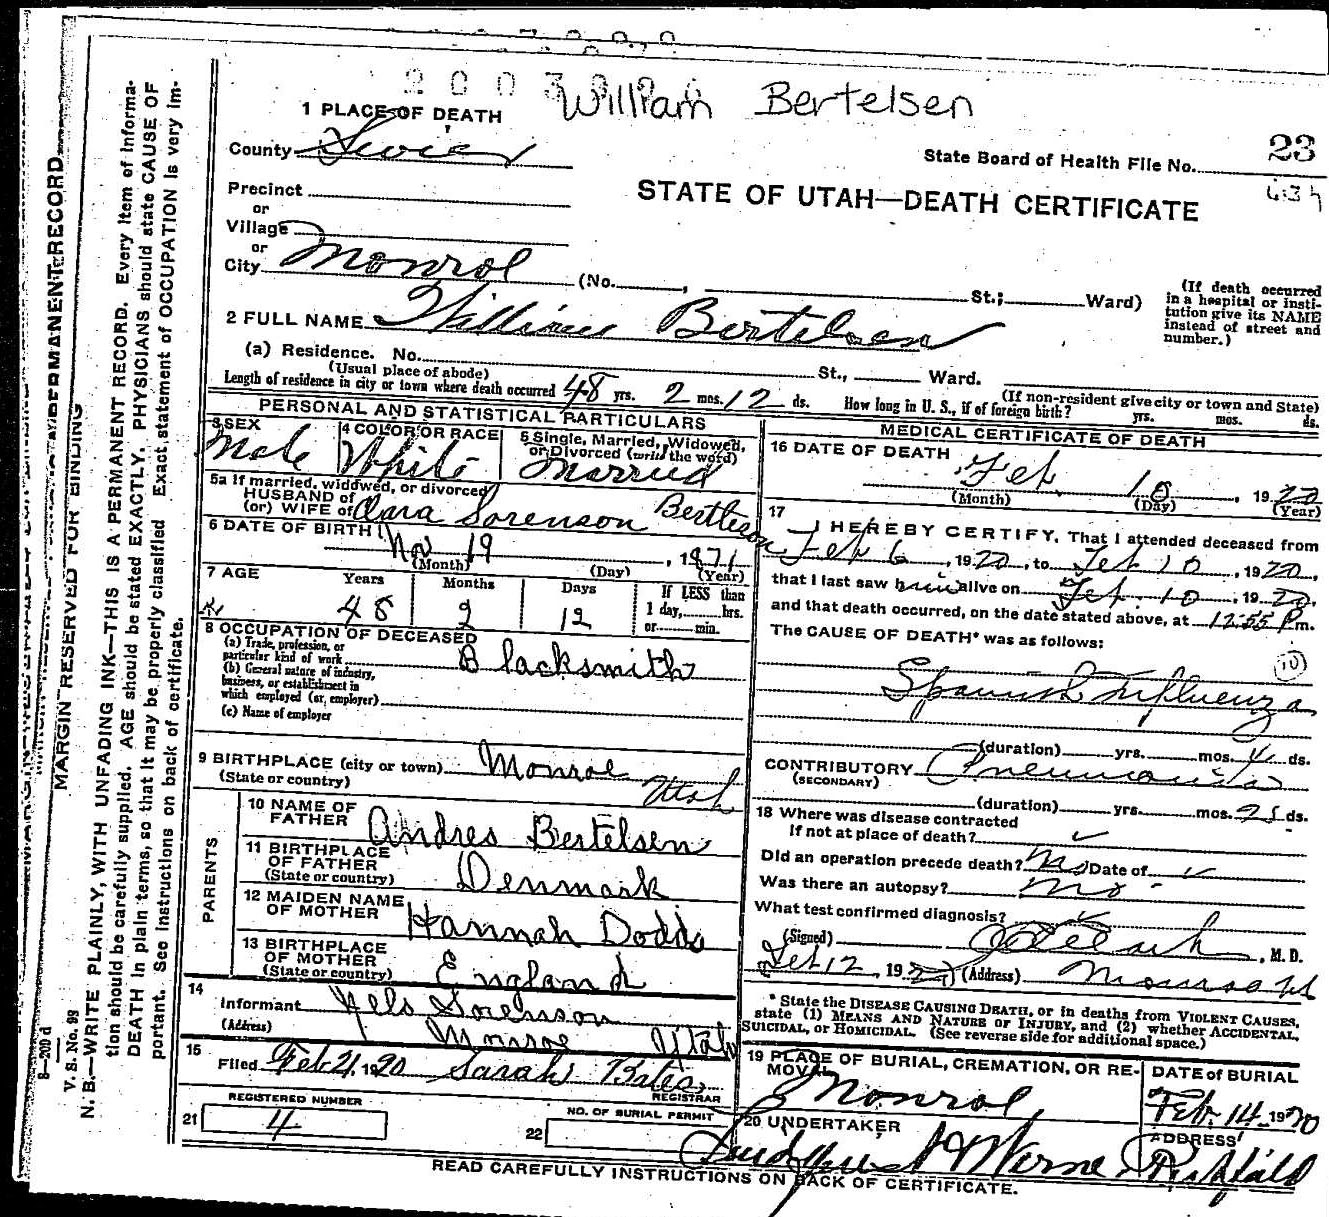 2003
William Bertelsen
1 PLACE OF DEATH
County Sevier
State Board of Health File No. 23
Precinct
STATE OF UTAH—DEATH CERTIFICATE
or
Village
or
City Monroe (No. , St.; Ward)
(If death occurred in a hospital or institution give its NAME instead of street and number.)
2 FULL NAME William Bertelsen
(a) Residence. No. St., Ward.
(Usual place of abode)
(If non-resident give city or town and State)
Length of residence in city or town where death occurred 48 yrs. 2 mos. 12 ds. How long in U. S., if of foreign birth? yrs. mos. ds.
PERSONAL AND STATISTICAL PARTICULARS
3 SEX
Male
4 COLOR OR RACE
White
5 Single, Married, Widowed, or Divorced (write the word)
Married
5a If married, widowed, or divorced
HUSBAND of
(or) WIFE of Clara Sorenson Bertleson
6 DATE OF BIRTH
Nov 19, 1871
(Month) (Day) (Year)
7 AGE Years Months Days If LESS than
48 2 12 1 day, hrs.
or min.
8 OCCUPATION OF DECEASED
(a) Trade, profession, or
particular kind of work Blacksmith
(b) General nature of industry,
business, or establishment in
which employed (or employer)
(c) Name of employer
9 BIRTHPLACE (city or town) Monroe
(State or country) Utah
PARENTS
10 NAME OF
FATHER Andres Bertelsen
11 BIRTHPLACE
OF FATHER
(State or country) Denmark
12 MAIDEN NAME
OF MOTHER Hannah Dodds
13 BIRTHPLACE
OF MOTHER
(State or country) England
14
Informant Nels Sorenson
(Address) Monroe Utah
15
Filed Feb 21, 1920 Sarah Bates
REGISTRAR
REGISTERED NUMBER
21 4
NO. OF BURIAL PERMIT
22
MEDICAL CERTIFICATE OF DEATH
16 DATE OF DEATH
Feb. 10, 1920
(Month) (Day) (Year)
17
I HEREBY CERTIFY, That I attended deceased from
Feb 6, 1920, to Feb 10, 1920,
that I last saw him alive on Feb. 10, 1920,
and that death occurred, on the date stated above, at 12:55 P m.
The CAUSE OF DEATH* was as follows:
10
Spanish Influenza
(duration) yrs. mos. 4 ds.
CONTRIBUTORY Pneumonia
(SECONDARY)
(duration) yrs. mos. ds.
18 Where was disease contracted
if not at place of death?
Did an operation precede death? No Date of
Was there an autopsy? No
What test confirmed diagnosis?
(Signed) , M. D.
Feb 12, 1920 (Address) Monroe Ut
* State the DISEASE CAUSING DEATH, or in deaths from VIOLENT CAUSES,
state (1) MEANS AND NATURE OF INJURY, and (2) whether ACCIDENTAL,
SUICIDAL, or HOMICIDAL. (See reverse side for additional space.)
19 PLACE OF BURIAL, CREMATION, OR REMOVAL
Monroe
DATE of BURIAL
Feb. 14, 1920
20 UNDERTAKER
ADDRESS
Richfield
READ CAREFULLY INSTRUCTIONS ON BACK OF CERTIFICATE.
MARGIN RESERVED FOR BINDING
V. S. No. 98
N. B.—WRITE PLAINLY, WITH UNFADING INK—THIS IS A PERMANENT RECORD. Every item of information should be carefully supplied. AGE should be stated EXACTLY. PHYSICIANS should state CAUSE OF DEATH in plain terms, so that it may be properly classified. Exact statement of OCCUPATION is very important. See instructions on back of certificate.